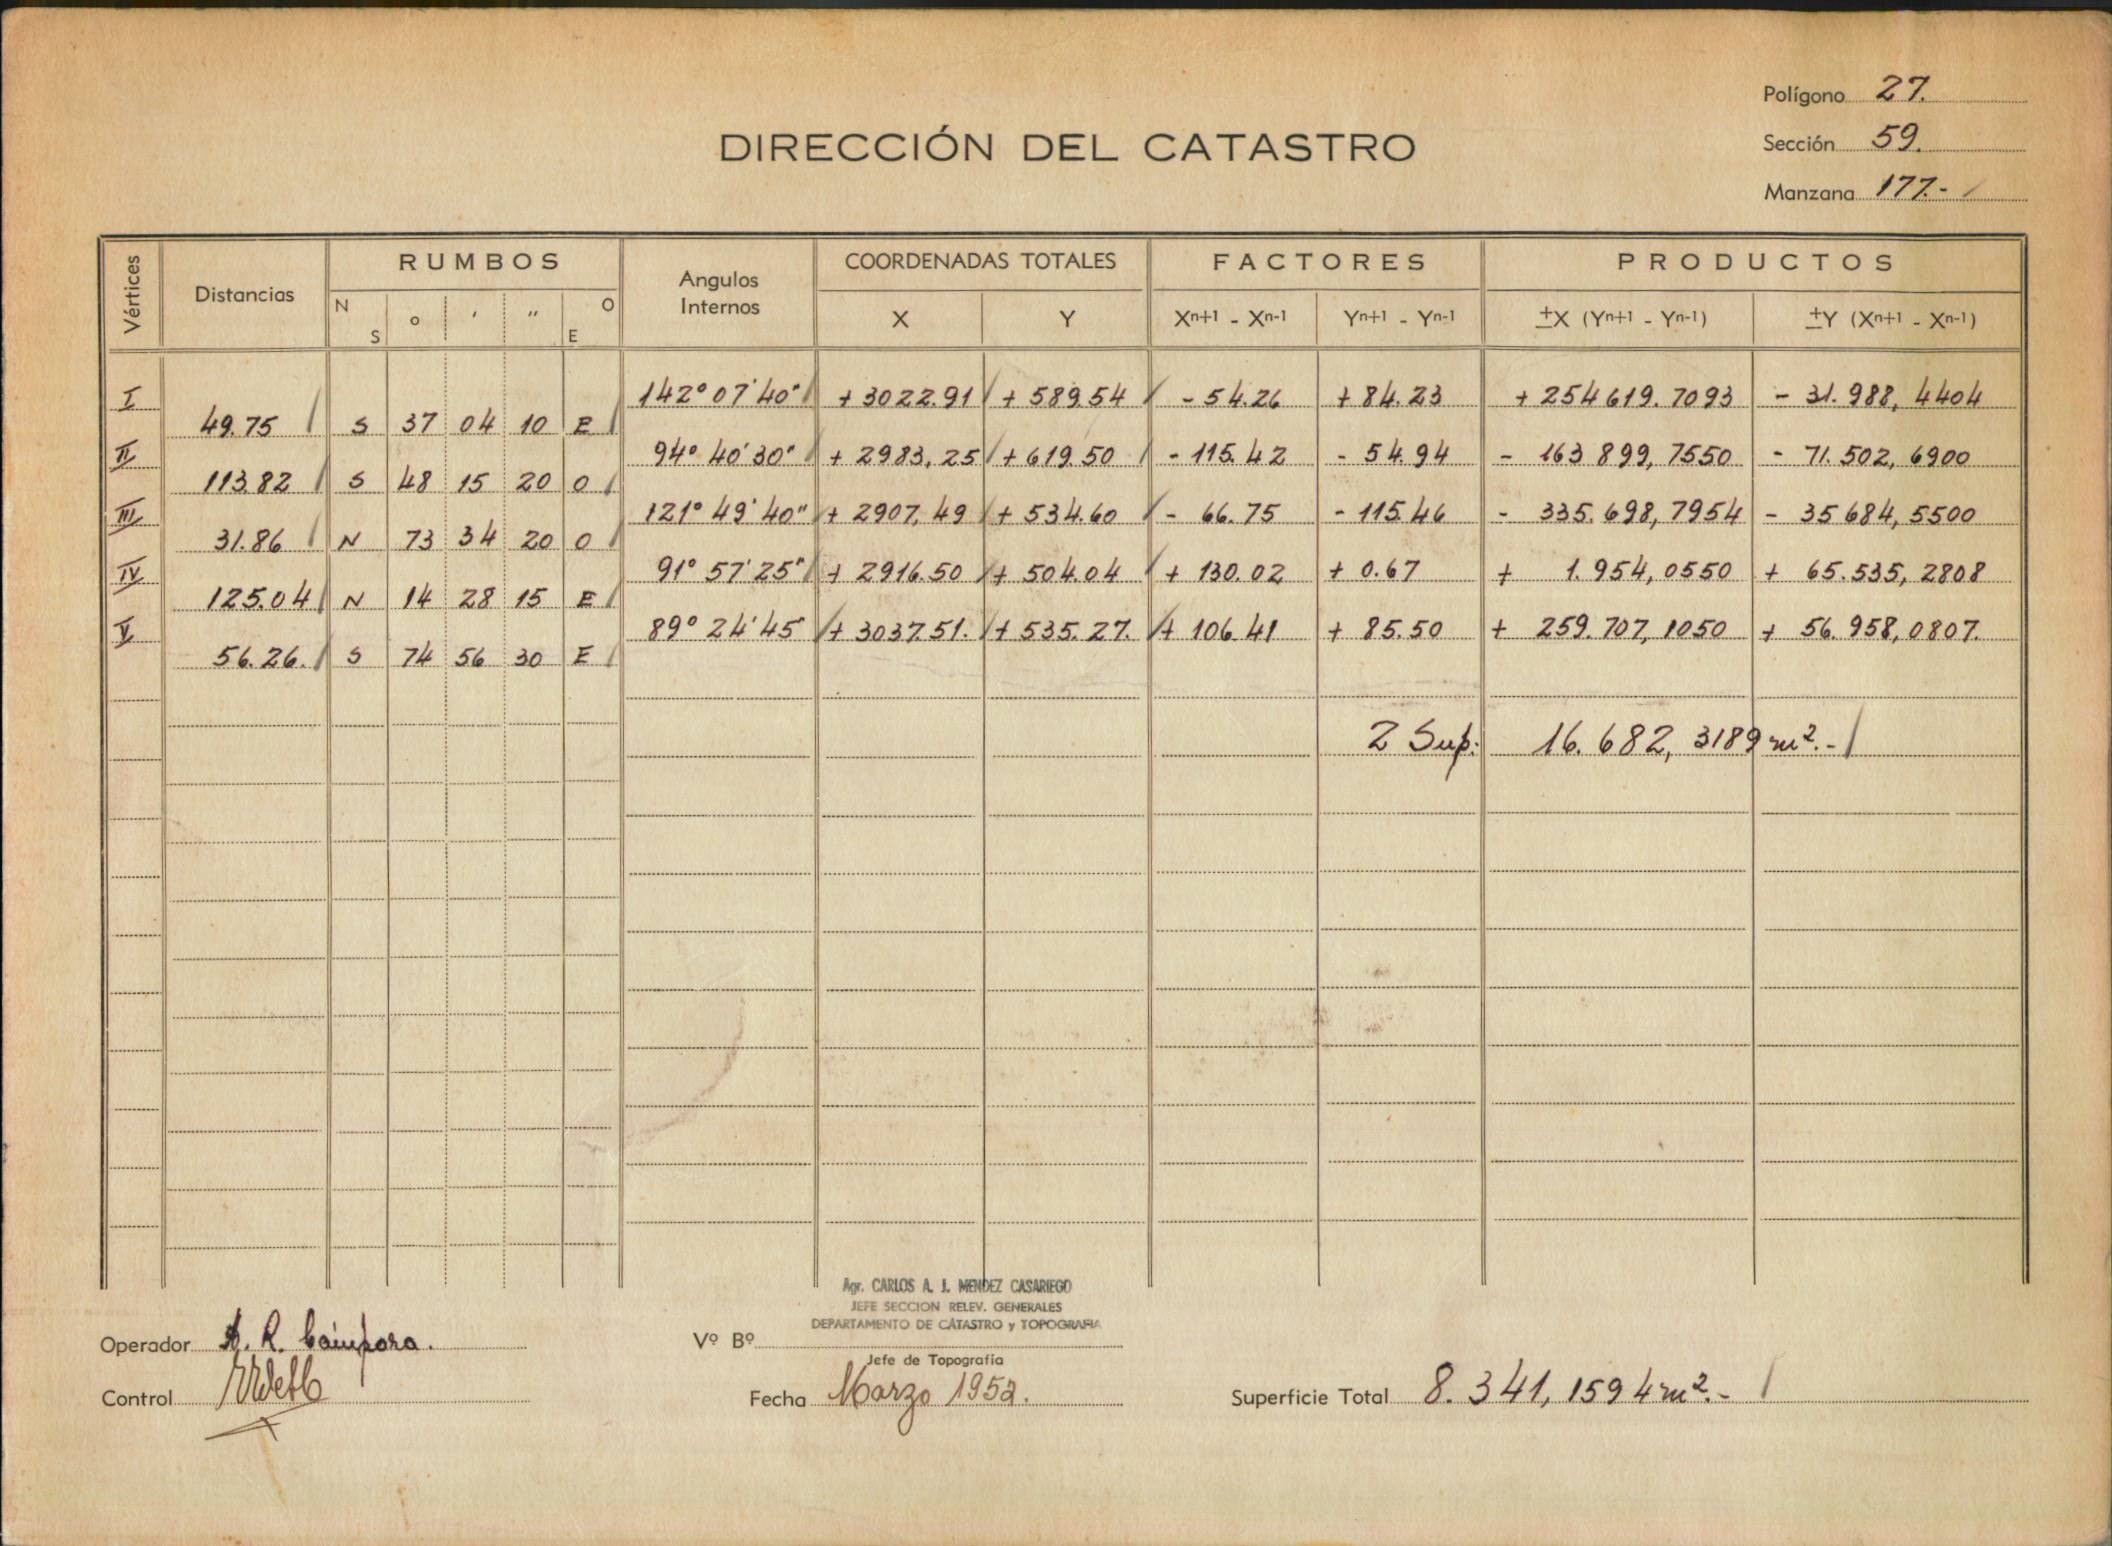 Polígono 27.
DIRECCIÓN DEL CATASTRO
Sección 59.
Manzana 177.-
Vértices Distancias RUMBOS Angulos Internos COORDENADAS TOTALES FACTORES PRODUCTOS
N S o ' '' O E X Y Xn+1 - Xn-1 Yn+1 - Yn-1 ±X (Yn+1 - Yn-1) ±Y (Xn+1 - Xn-1)
I 142° 07' 40" + 3022.91 + 589.54 - 54.26 + 84.23 + 254619.7093 - 31.988,4404
49.75 S 37 04 10 E
II 94° 40' 30" + 2983,25 + 619.50 - 115.42 - 54.94 - 163 899,7550 - 71.502,6900
113.82 S 48 15 20 O
III 121° 49' 40" + 2907,49 + 534.60 - 66.75 - 115.46 - 335.698,7954 - 35 684,5500
31.86 N 73 34 20 O
IV 91° 57' 25" + 2916.50 + 504.04 + 130.02 + 0.67 + 1.954,0550 + 65.535,2808
125.04 N 14 28 15 E
V 89° 24' 45 + 3037.51. + 535.27. + 106.41 + 85.50 + 259.707,1050 + 56.958,0807.
56.26. S 74 56 30 E
2 Sup: 16.682,3189 m².-
Agr. CARLOS A. J. MENDEZ CASARIEGO
JEFE SECCION RELEV. GENERALES
DEPARTAMENTO DE CATASTRO y TOPOGRAFIA
Operador R. Cámpora. Vº Bº
Jefe de Topografía
Control Fecha Marzo 1952. Superficie Total 8.341,1594 m².-